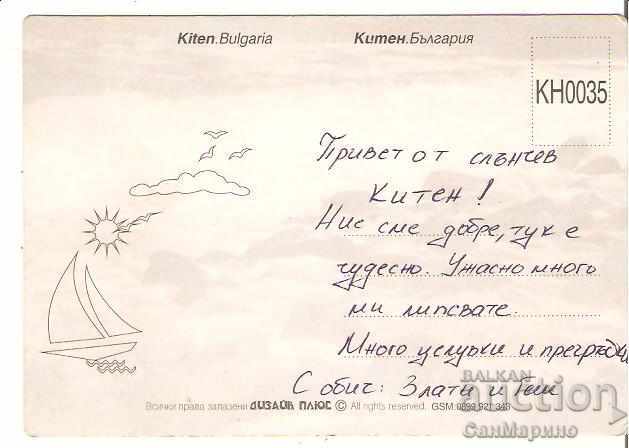 Kiten.Bulgaria
Китен.България
KH0035
Привет от слънчев
Китен!
Ние сме добре, тук е
чудесно. Ужасно много
ми липсвате.
Много целувки и прегръдки
С обич: Злати и
Всички права запазени ДИЗАЙН ПЛЮС © All rights reserved. GSM:0899 921 343
BALKAN
auction
СанМарино